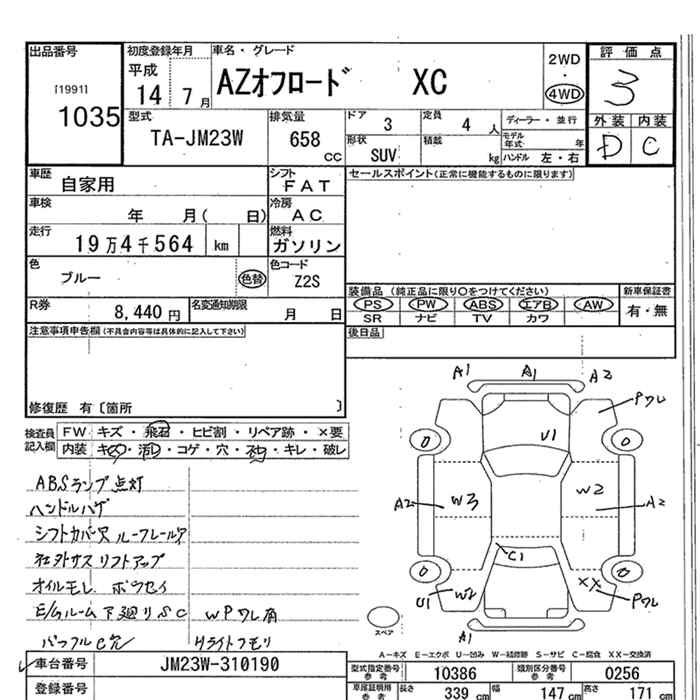 出品番号
[1991]
1035
初度登録年月
平成
14 7月
車名・グレード
AZオフロード XC
2WD
・
4WD
評価点
3
外装 内装
D C
型式
TA-JM23W
排気量
658
CC
ドア 3
定員 4 人
形状
SUV
積載
kg
ディーラー・並行
モデル年式 年
ハンドル 左・右
車歴
自家用
シフト
FAT
車検
年 月( 日)
冷房
AC
走行
19万4千564 km
燃料
ガソリン
色
ブルー
色替
色コード
Z2S
R券
8,440円
名変通知期限
月 日
セールスポイント(正常に機能するものに限ります)
装備品 (純正品に限り○をつけてください)
PS PW ABS エアB AW
SR ナビ TV カワ
新車保証書
有・無
後日品
注意事項申告欄(不具合内容等は具体的に記入して下さい)
修復歴 有〔箇所 〕
検査員
記入欄
FW キズ・飛石・ヒビ割・リペア跡・×要
内装 キズ・汚れ・コゲ・穴・・キレ・破レ
ABSランプ点灯
ハンドルハゲ
シフトカバー穴
社外サスリフトアップ
オイルモレ
E/Gルーム下廻りSC
WPワレ有
マフラーC穴
Hライトクモリ
A1 A1 A2
Pワレ
U1
A2 W3 W2 A2
C1
U1 W2 XX Pワレ
A1
スペア
A-キズ E-エクボ U-凹み W-補修跡 S-サビ C-腐食 XX-交換済
車台番号
JM23W-310190
登録番号
型式指定番号
参考
10386
類別区分番号
参考
0256
車庫証明用
参考
長さ 339 cm
幅 147 cm
高さ 171 cm